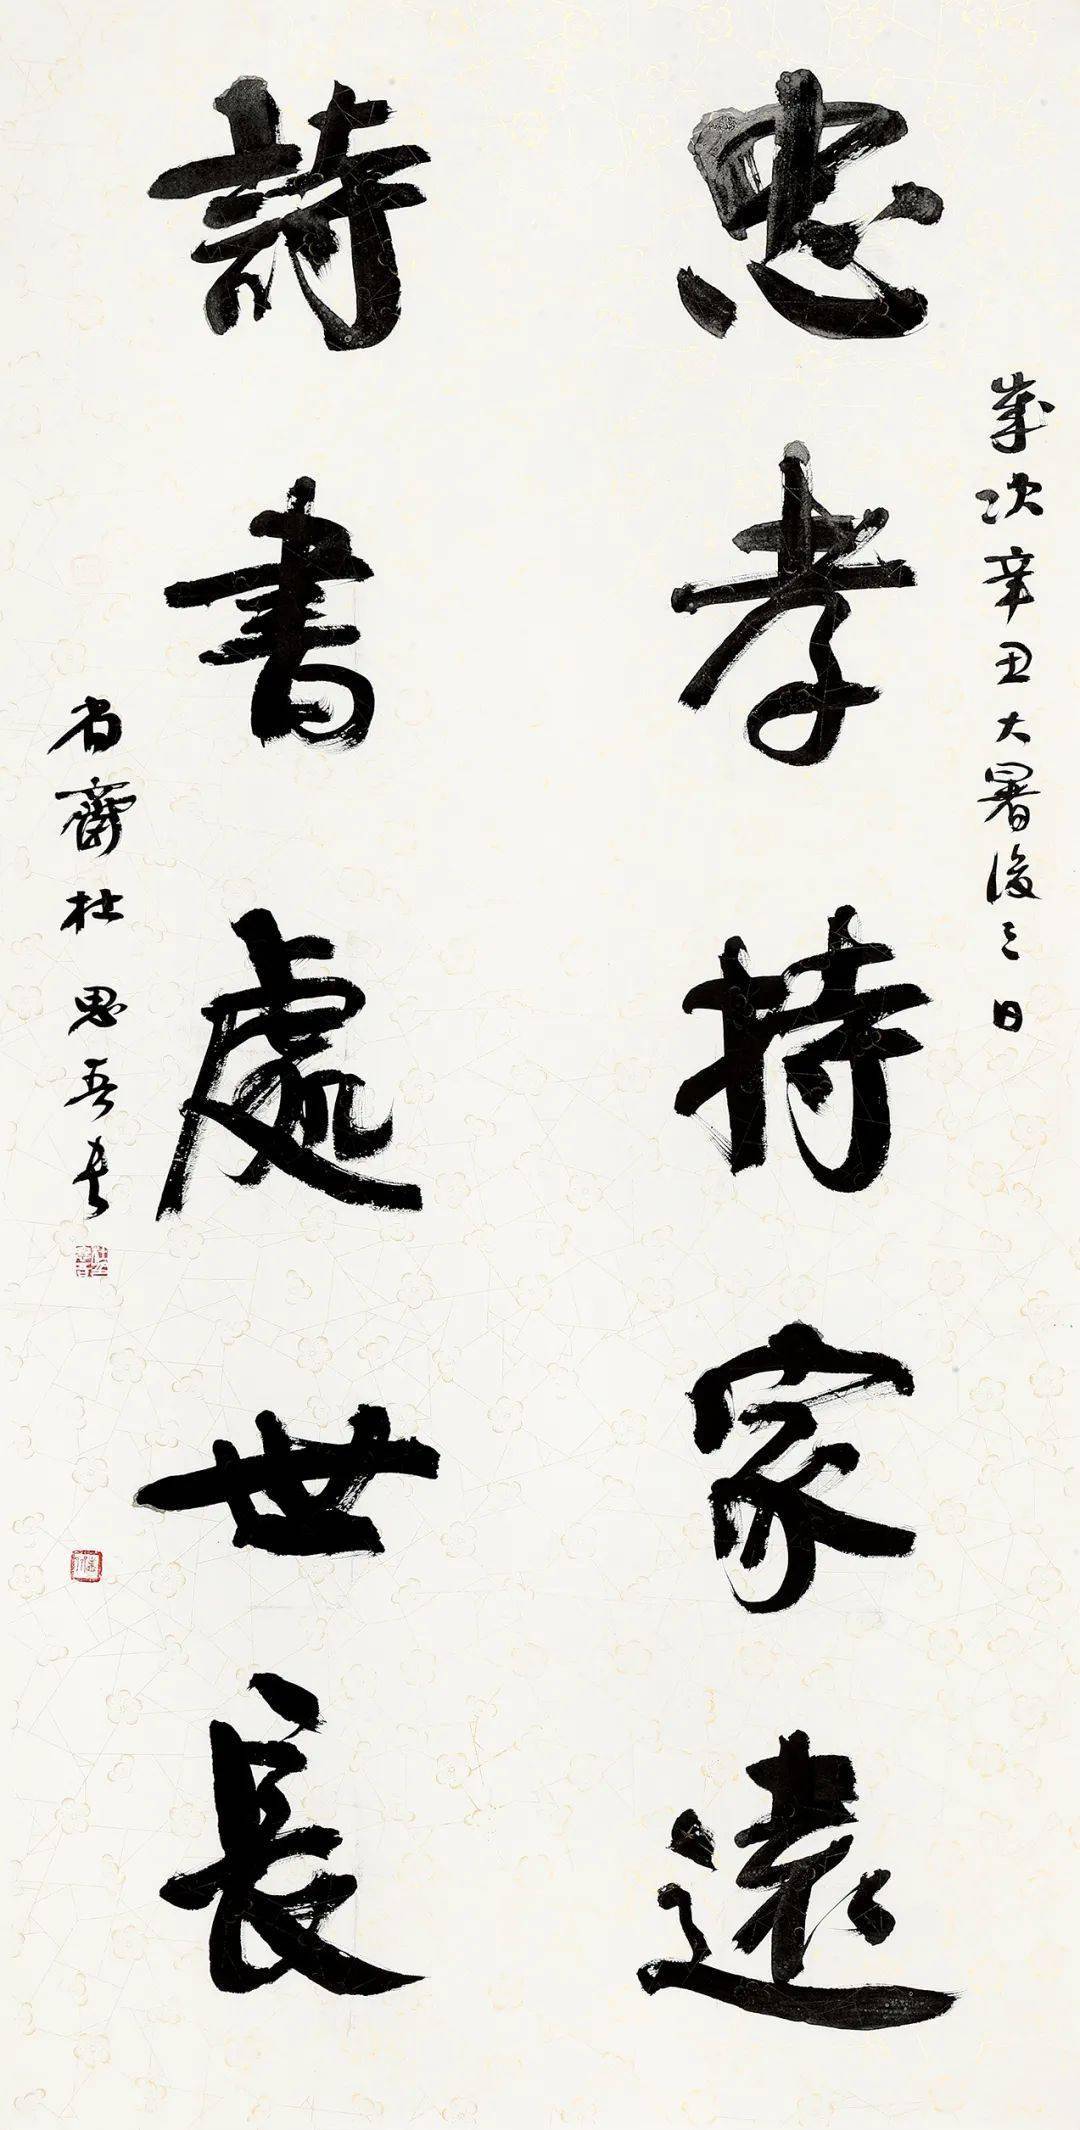 歲次辛丑大暑後三日
忠孝持家遠
詩書處世長
省齋杜思吾書